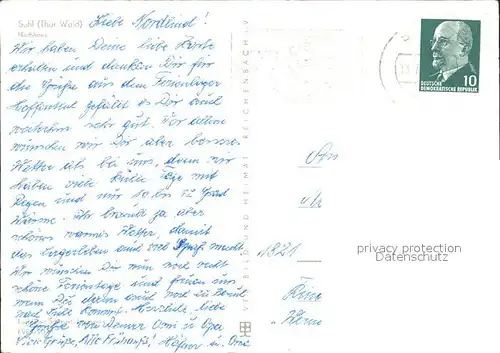 Suhl (Thür Wald)
Liebe
Wir haben Deine liebe Karte
erhalten und danken Dir für
die Grüße aus dem Ferienlager
Hoffentlich gefällt es Dir auch
weiterhin sehr gut. Vor allem
wünschen wir Dir aber besseres
Wetter als bei uns, denn wir
haben viele kühle Tage mit
Regen und nur 10 bis 12 Grad
Wärme. Ihr braucht ja aber
schönes warmes Wetter, damit
das Lagerleben auch viel Spaß macht
Wir wünschen Dir nun noch recht
schöne Ferientage und freuen uns
wenn Du dann auch noch zu Besuch
nach Suhl kommst. Herzliche, liebe
Grüße von Deiner Omi u Opa
BILD UND HEIMAT REICHENBACH
10
DEUTSCHE
DEMOKRATISCHE REPUBLIK
An
1821
privacy protection
DSGVO